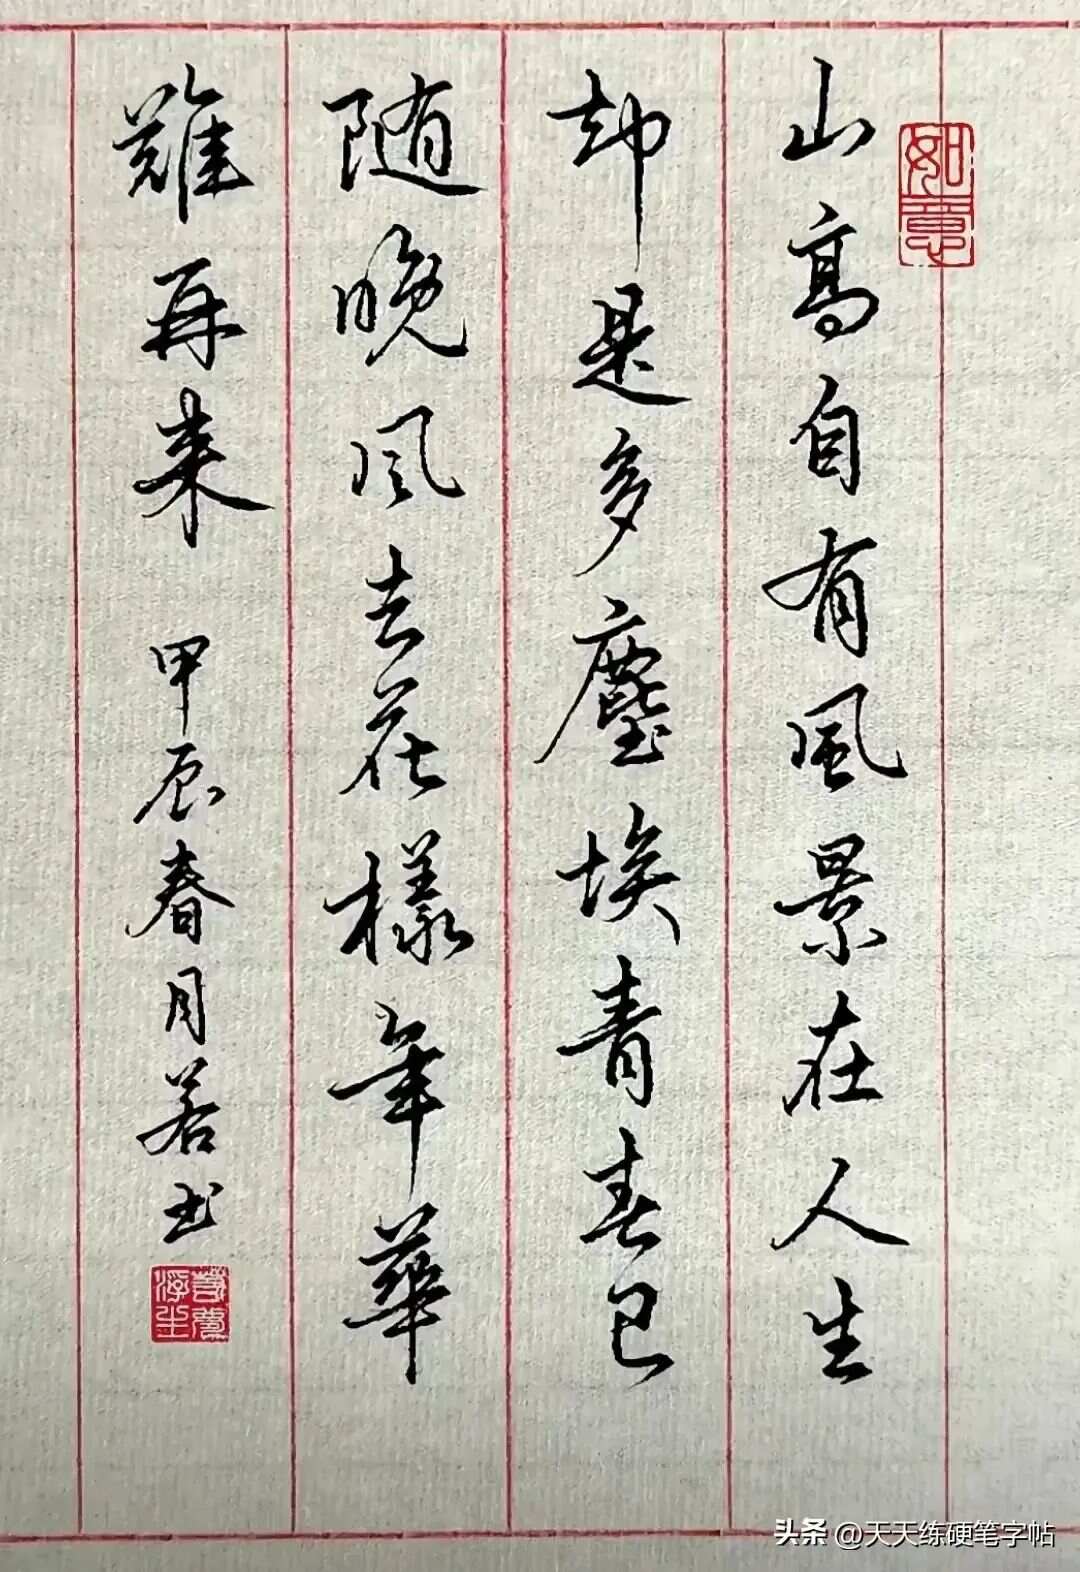 如意
山高自有風景在人生
却是多塵埃青春已
随晚风去花樣年華
難再来 甲辰春月若书
若夢浮生
头条 @天天练硬笔字帖